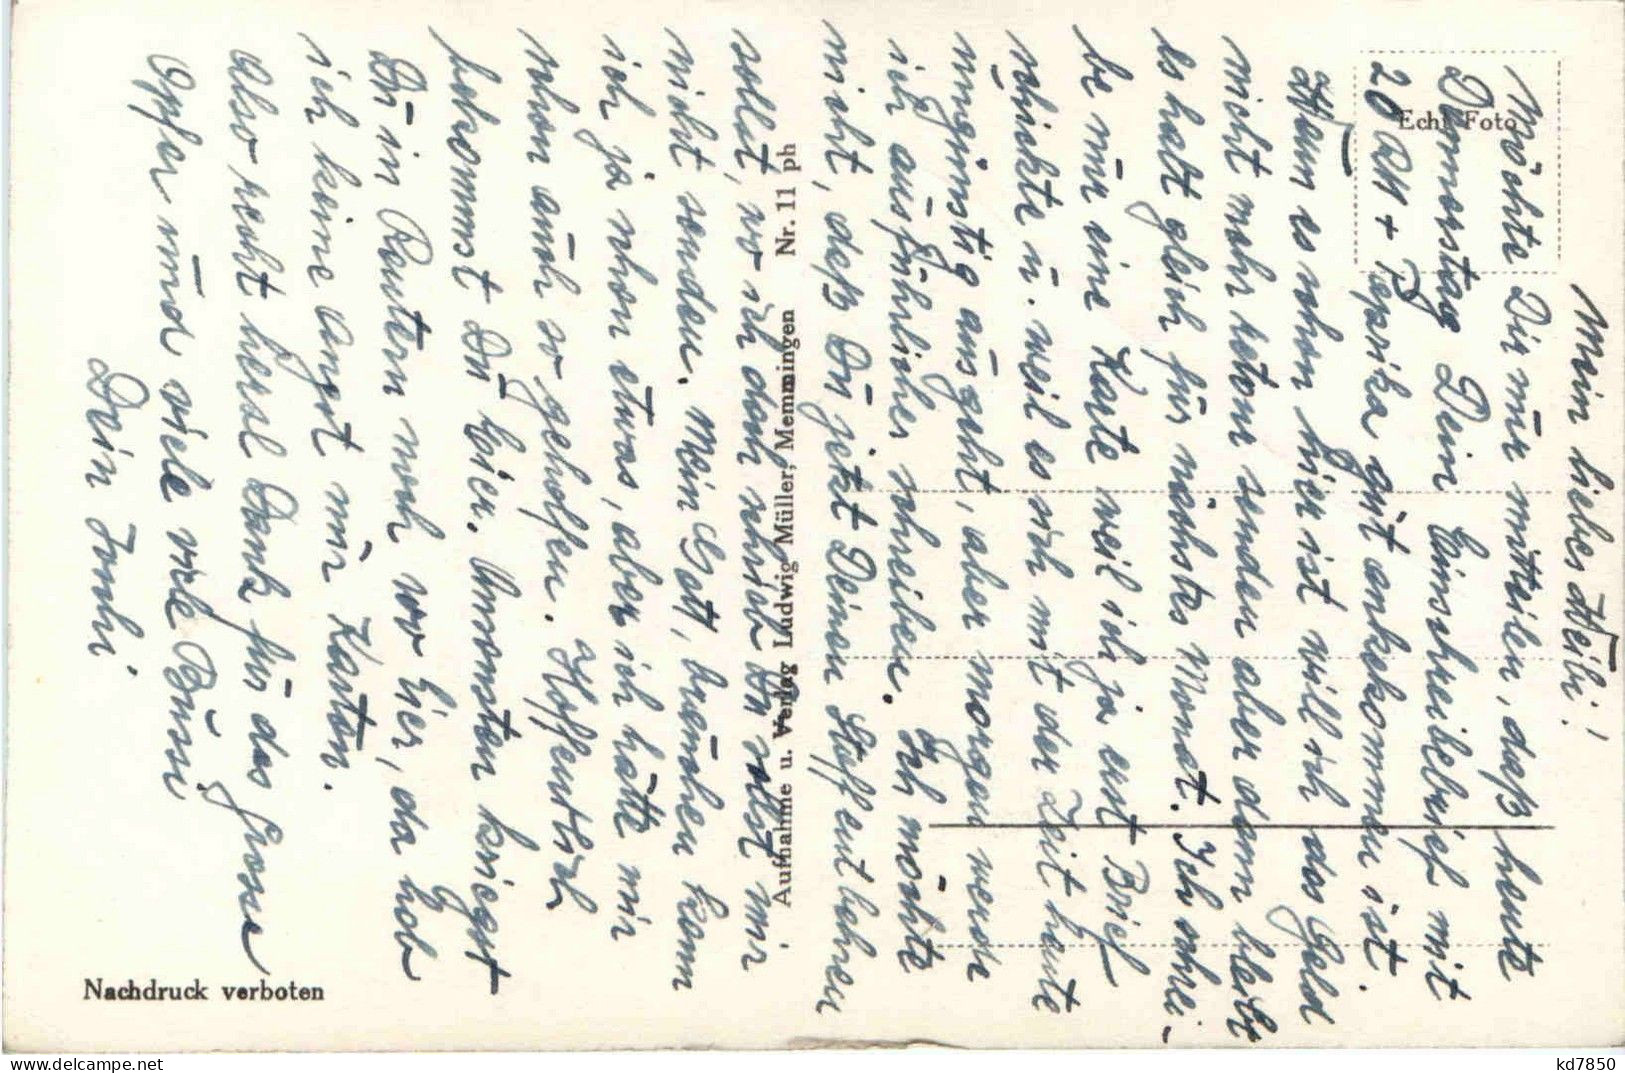 Mein liebes Heibi!
Möchte Dir nur mitteilen, daß heute
Donnerstag Dein Einschreibebrief mit
20 DM + Paprika gut ankekommen ist.
Wenn es schon hier ist will ich das Geld
nicht mehr retour senden aber dann bleibt
es halt gleich für nächstes Monat. Ich schrei-
be nur eine Karte weil ich ja erst Brief
schickte u. weil es sich mit der Zeit heute
ungünstig ausgeht, aber morgen werde
ich ausführlicher schreiben. Ich möchte
nicht, daß Du jetzt Deinen Stoff entbehren
sollst, wo ich doch schrieb Du sollst mir
nicht senden. Mein Gott, brauchen kann
ich ja schon etwas, aber ich hätte mir
schon auch so geholfen. Hoffentlich
bekommst Du Eier. Ansonsten kriegst
Du in Reutern noch wo Eier, da hob
ich keine Angst nur Karton.
Also recht herzl Dank für das grosse
Opfer und viele viele Bussi
Dein
Echt Foto
Aufnahme u. Verlag Ludwig Müller, Memmingen Nr. 11 ph
Nachdruck verboten
kd7850